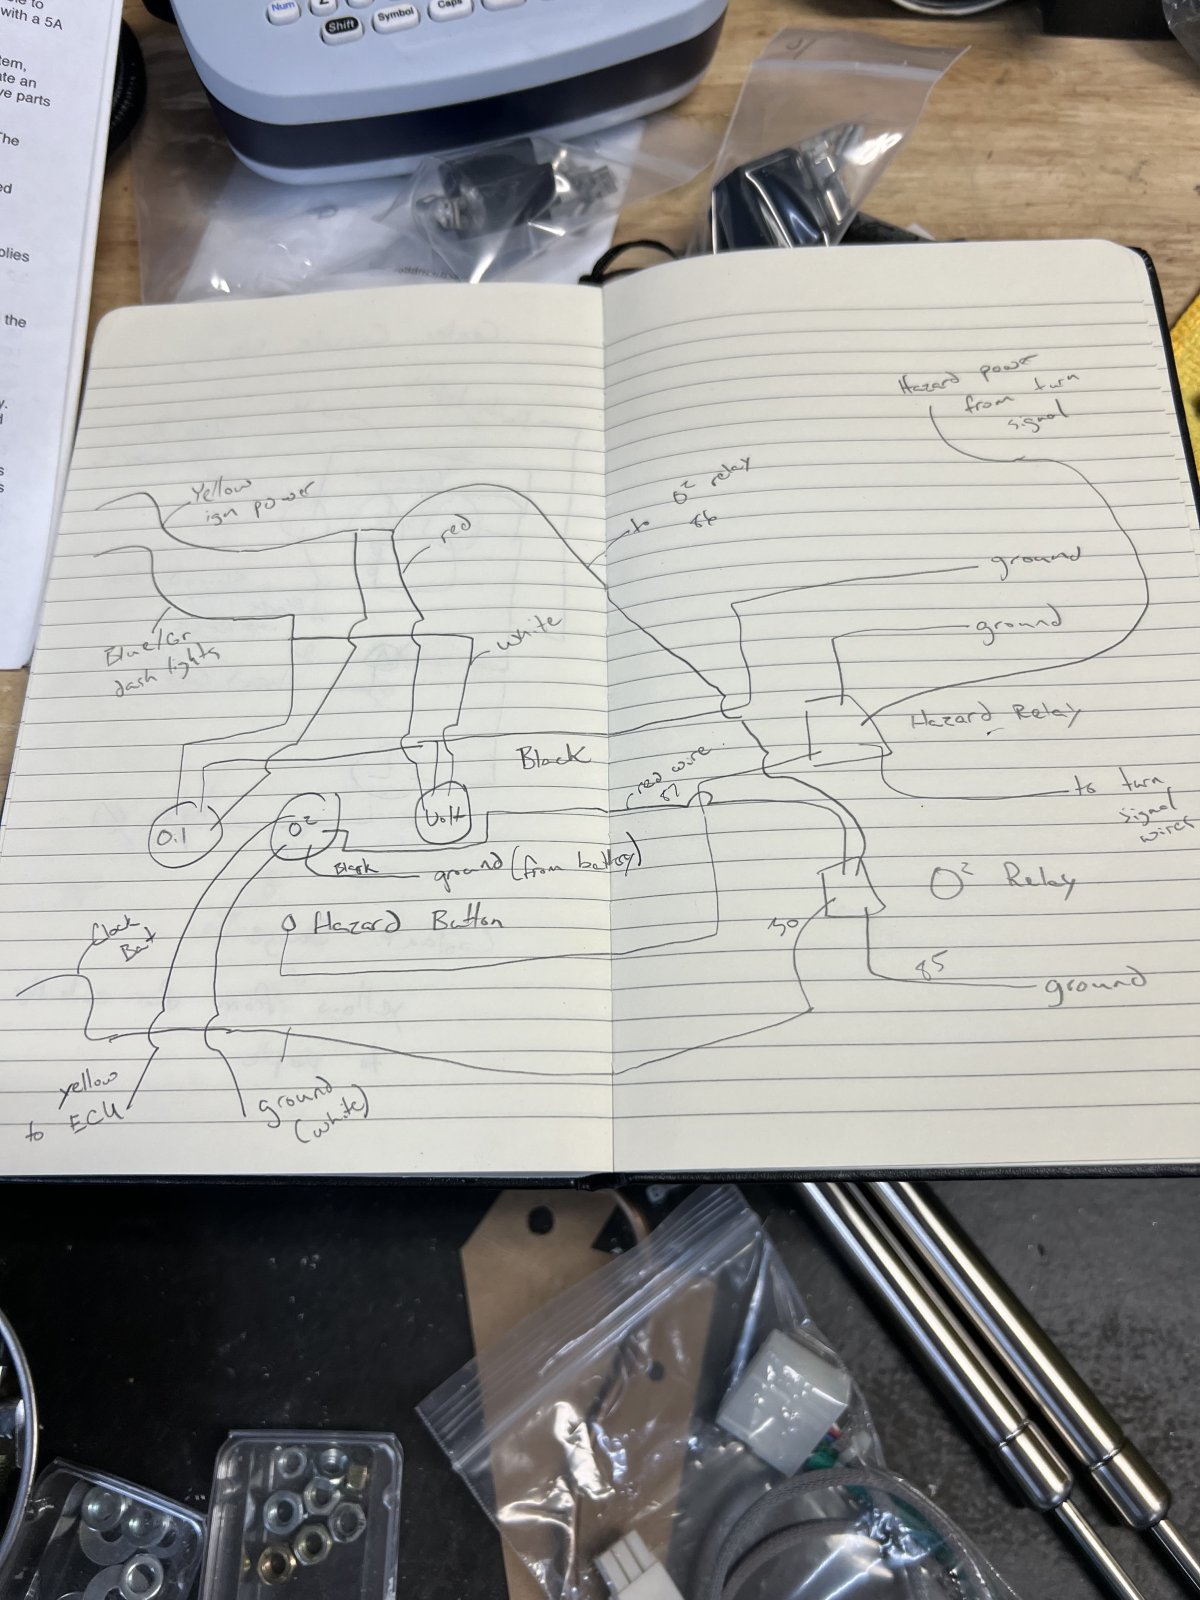 le to
with a 5A
tem,
ate an
ve parts
The
ed
plies
the
y.
s
s
Num
Shift
Symbol
Caps
Hazard power
from turn
signal
Yellow
ign power
red
to O² relay
86
ground
Blue/Gr
dash lights
white
ground
Hazard Relay
Black
red wire
87
to turn
signal
wires
Oil
O²
Volt
Black
ground (from battery)
O² Relay
Hazard Button
30
Clock
Bat
85
ground
yellow
to ECU
ground
(white)